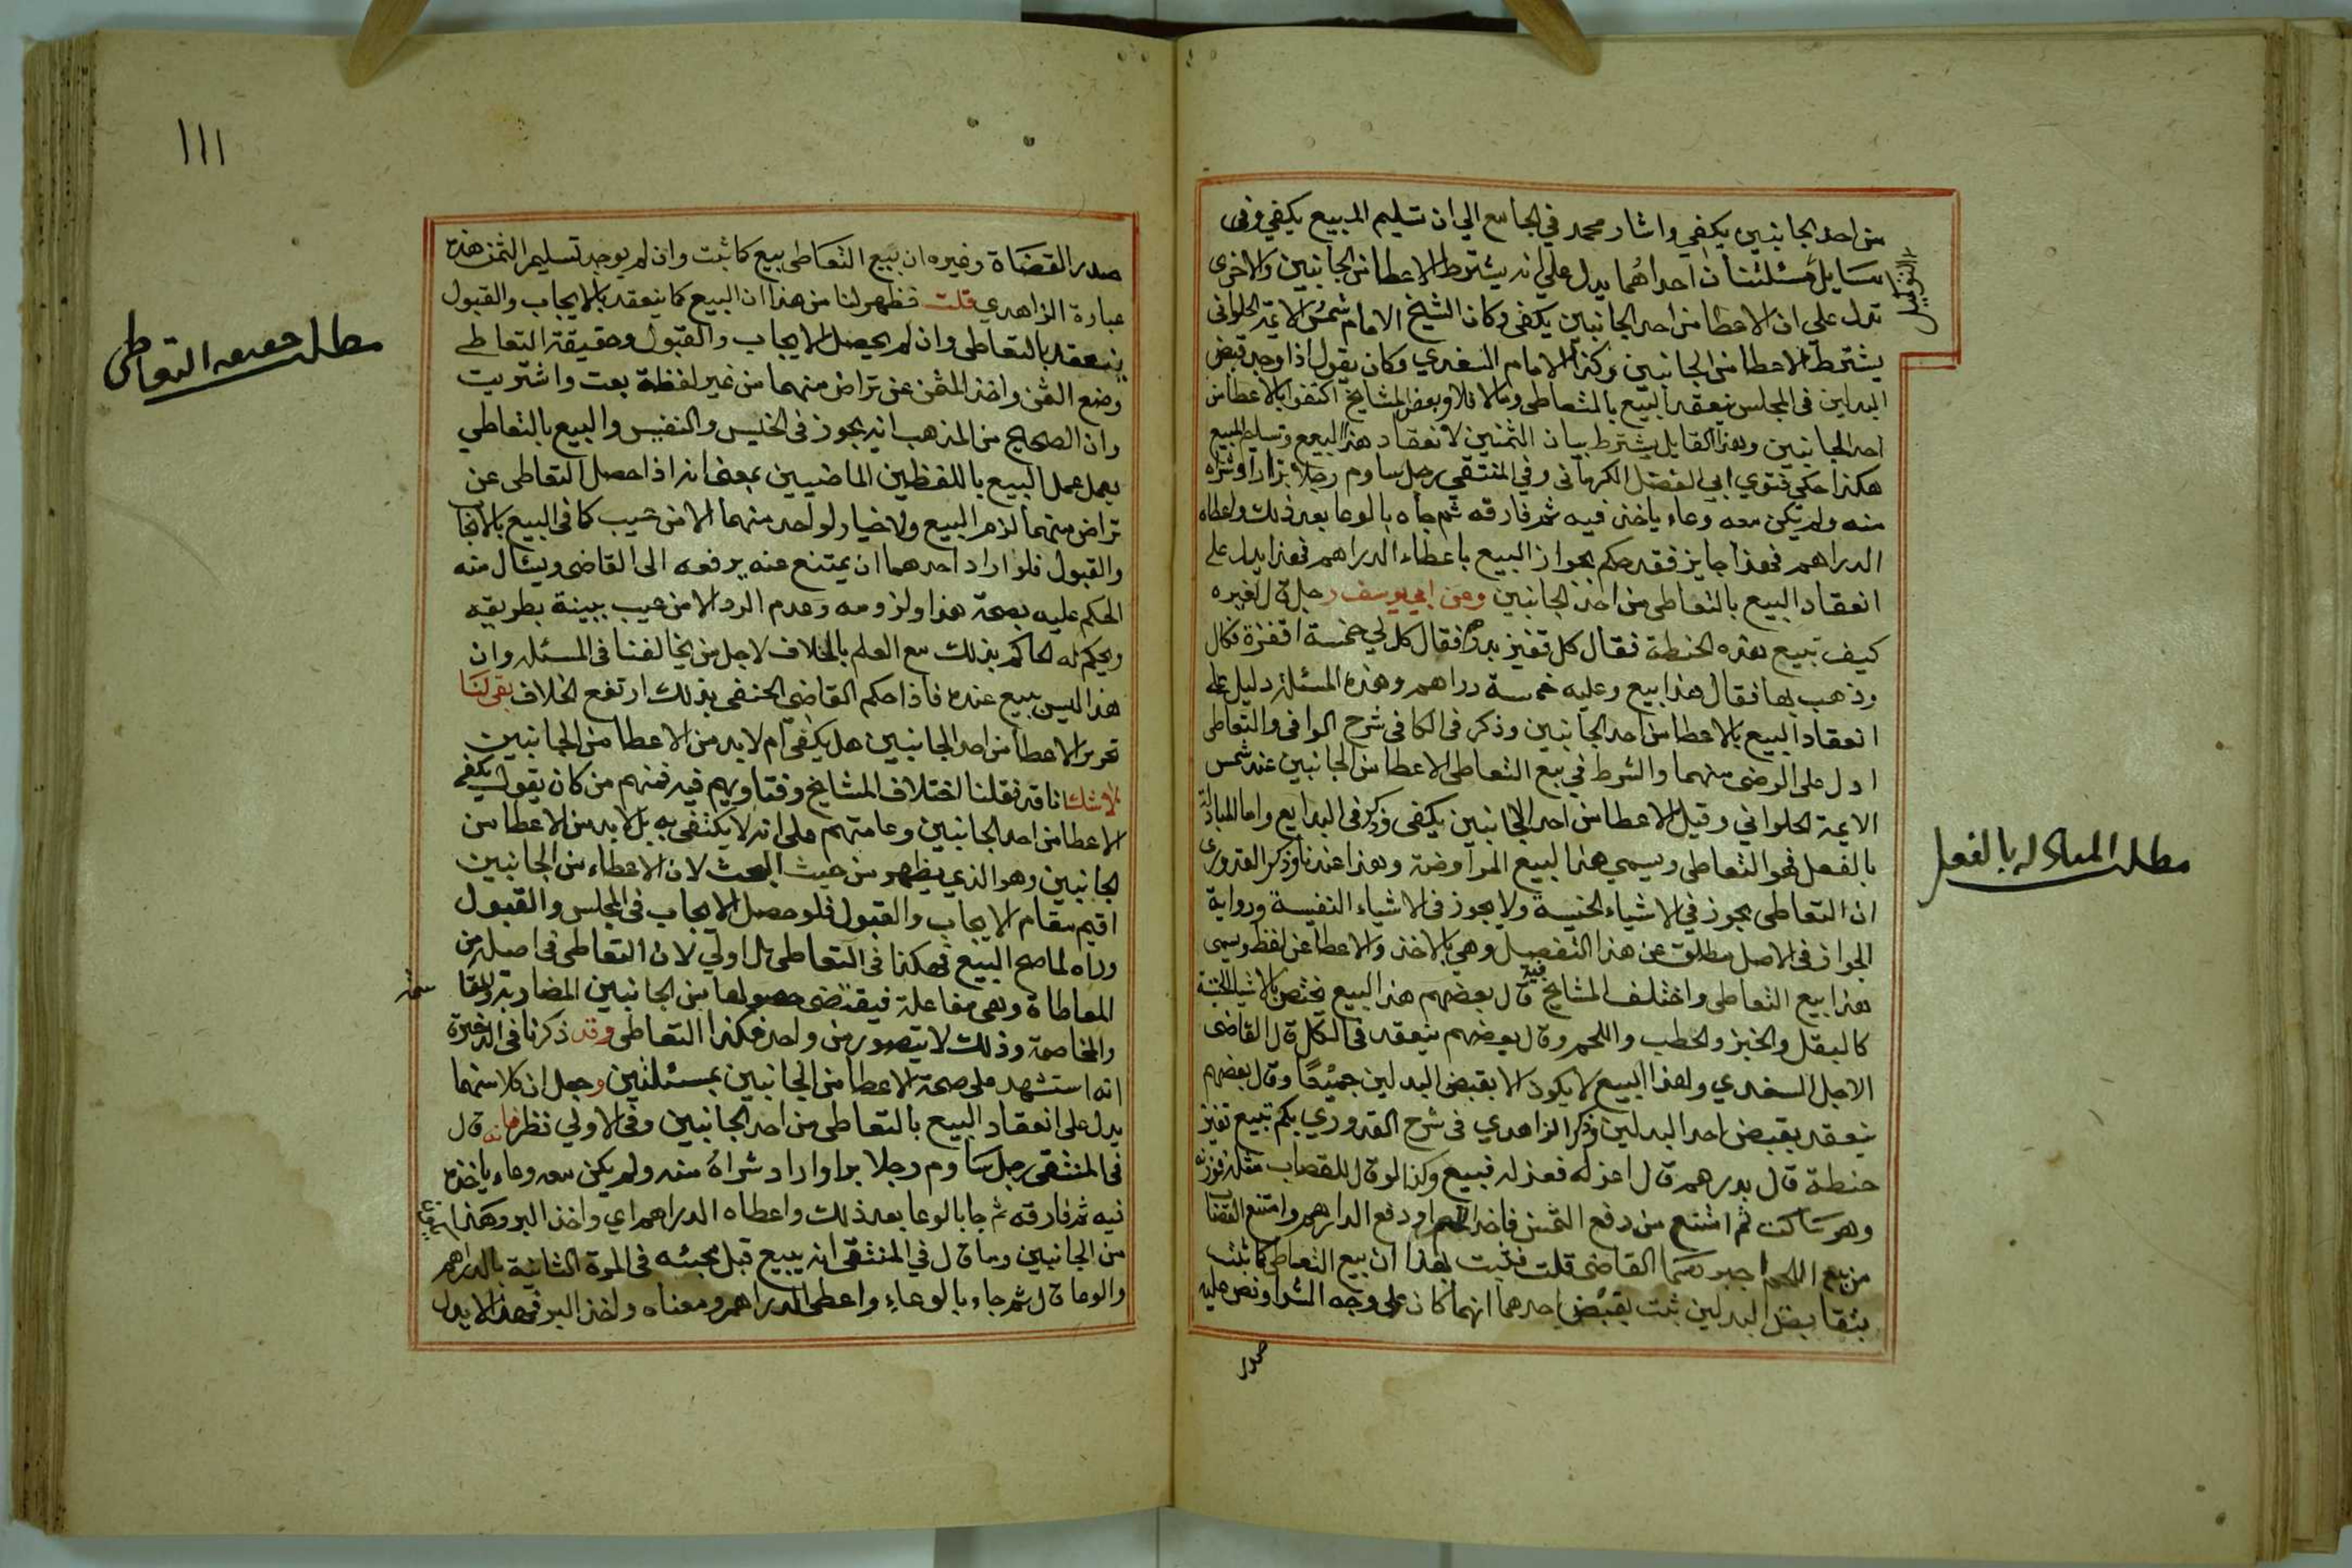 من احد الجانبين يكفي واشار محمد في الجامع الي ان تسليم المبيع يكفي وفى
مسايل مسئلتنا ان احداهما يدل علي انه يشترط الاعطا من الجانبين والاخرى
التوكيل
تدل علي ان الاعطا من احد الجانبين يكفى وكان الشيخ الامام شمس الايمة الحلوانى
يشترط الاعطا من الجانبين وكذا الامام السغدي وكان يقول اذا وجد قبض
البدلين فى المجلس ينعقد البيع بالتعاطى ومالا فلا وبعض المشايخ اكتفوا بالاعطا من
احد الجانبين وهذا القايل يشترط بيان الثمنين لانعقاد هذا البيع وتسليم المبيع
هكذا حكي فتوي ابي الفضل الكرمانى وفي المنتقي رجل ساوم رجلا بزا اراد شراه
منه ولم يكن معه وعاء ياخذ فيه ثم فارقه ثم جاه بالوعا بعد ذلك واعطاه
الدراهم فهذا جايز فقد حكم بجواز البيع باعطاء الدراهم فهذا يدل علي
انعقاد البيع بالتعاطى من احد الجانبين وعن ابي يوسف رجل قال لغيره
كيف تبيع هذه الحنطة فقال كل قفيز بدرهم فقال كل لي خمسة اقفزة فكال
وذهب بها فقال هذا بيع وعليه خمسة دراهم وهذه المسئلة دليل على
انعقاد البيع بالاعطا من احد الجانبين وذكر فى الكافى شرح الوافى والتعاطى
ادل على الرضى منهما والشرط في بيع التعاطى الاعطا من الجانبين عند شمس
الايمة الحلواني وقيل الاعطا من احد الجانبين يكفى وذكر فى البدايع واما المبادلة
بالفعل فهو التعاطى ويسمي هذا لبيع المراوضة وهذا عندنا وذكر القدورى
ان التعاطى يجوز في الاشياء الخسيسة ولا يجوز فى الاشياء النفيسة ورواية
الجواز فى الاصل مطلق عن هذا التفصيل وهي بالاخذ والاعطا عن لفظ ويسمى
هذا بيع التعاطى واختلف المشايخ فيه قال بعضهم هذا البيع يختص بالاشيا الخسيسة
كالبقل والخبز والحطب واللحم وقال بعضهم ينعقد فى الكل قال القاضى
الاجل السغدي وهذا البيع لا يكون الا بقبض البدلين جميعا وقال بعضهم
ينعقد بقبض احد البدلين وذكر الزاهدي فى شرح القدوري بكم تبيع قفيز
حنطة قال بدرهم قال اعزله فعزله فبيع وكذا لو قال للقصاب مثله فوزنه
وهو ساكت ثم امتنع من دفع الثمن فاخذ اللحم او دفع الدراهم وامتنع القصاب
من بيع اللحم اجبرهما القاضى قلت فثبت بهذا ان بيع التعاطى كما ثبت
بتقابض البدلين ثبت بقبض احدهما انهما كان على وجه الشرا ونص عليه
صدر
مطلب المبادله بالفعل
١١١
صدر القضاة وغيره ان بيع التعاطى بيع كما ثبت وان لم يوجد تسليم الثمن هذه
عبارة الزاهدي قلت فظهر لنا من هذا ان البيع كما ينعقد بالايجاب والقبول
ينعقد بالتعاطى وان لم يحصل الايجاب والقبول وحقيقة التعاطى
وضع الثمن واخذ المثمن عن تراض منهما من غير لفظة بعت واشتريت
وان الصحيح من المذهب انه يجوز فى الخسيس والنفيس والبيع بالتعاطي
يعمل عمل البيع باللفظين الماضيين بمعنى انه اذا حصل التعاطى عن
تراض منهما لزم البيع ولا خيار لواحد منهما الا من عيب كما فى البيع بالايجاب
والقبول فلو اراد احدهما ان يمتنع عنه يرفعه الى القاضى ويسال منه
الحكم عليه بصحة هذا ولزومه وعدم الرد الا من عيب ببينة بطريقه
ويحكم له الحاكم بذلك مع العلم بالخلاف لاجل من يخالفنا فى المسئلة وان
هذا ليس ببيع عنده فاذا حكم القاضى الحنفى بذلك ارتفع الخلاف بقى لنا
تحرير الاعطا من احد الجانبين هل يكفى ام لا بد من الاعطا من الجانبين
لاشك انا قد نقلنا اختلاف المشايخ وفتاويهم فيه فمنهم من كان يقول يكفى
الاعطا من احد الجانبين وعامتهم على انه لا يكتفى به بل لا بد من الاعطا من
الجانبين وهو الذي يظهر من حيث البحث لان الاعطاء من الجانبين
اقيم مقام الايجاب والقبول فلو حصل الايجاب فى المجلس والقبول
وراه لما صح البيع فهكذا فى التعاطى بل اولي لان التعاطى فى اصله من
المعاطاة وهى مفاعلة فيقتضى حصولها من الجانبين المضاربة والمقا
سمة
والمخاصمة وذلك لا يتصور من واحد فكذا التعاطى وقد ذكرنا فى الذخيرة
انه استشهد على صحة الاعطا من الجانبين بمسئلتين وجعل ان كلا منهما
يدل على انعقاد البيع بالتعاطى من احد الجانبين وفى الاولي نظر فانه قال
فى المنتقى رجل ساوم رجلا بزا واراد شراه منه ولم يكن معه وعاء ياخذه
فيه ثم فارقه ثم جا بالوعا بعد ذلك واعطاه الدراهم اي واخذ البر وهذا
من الجانبين وما قال في المنتقى انه يبيع قبل مجيئه فى المرة الثانية بالدراهم
والوعا قال ثم جاء بالوعاء واعطى الدراهم ومعناه واخذ البر فهذا لا يدل
مطلب حقيقه التعاطى